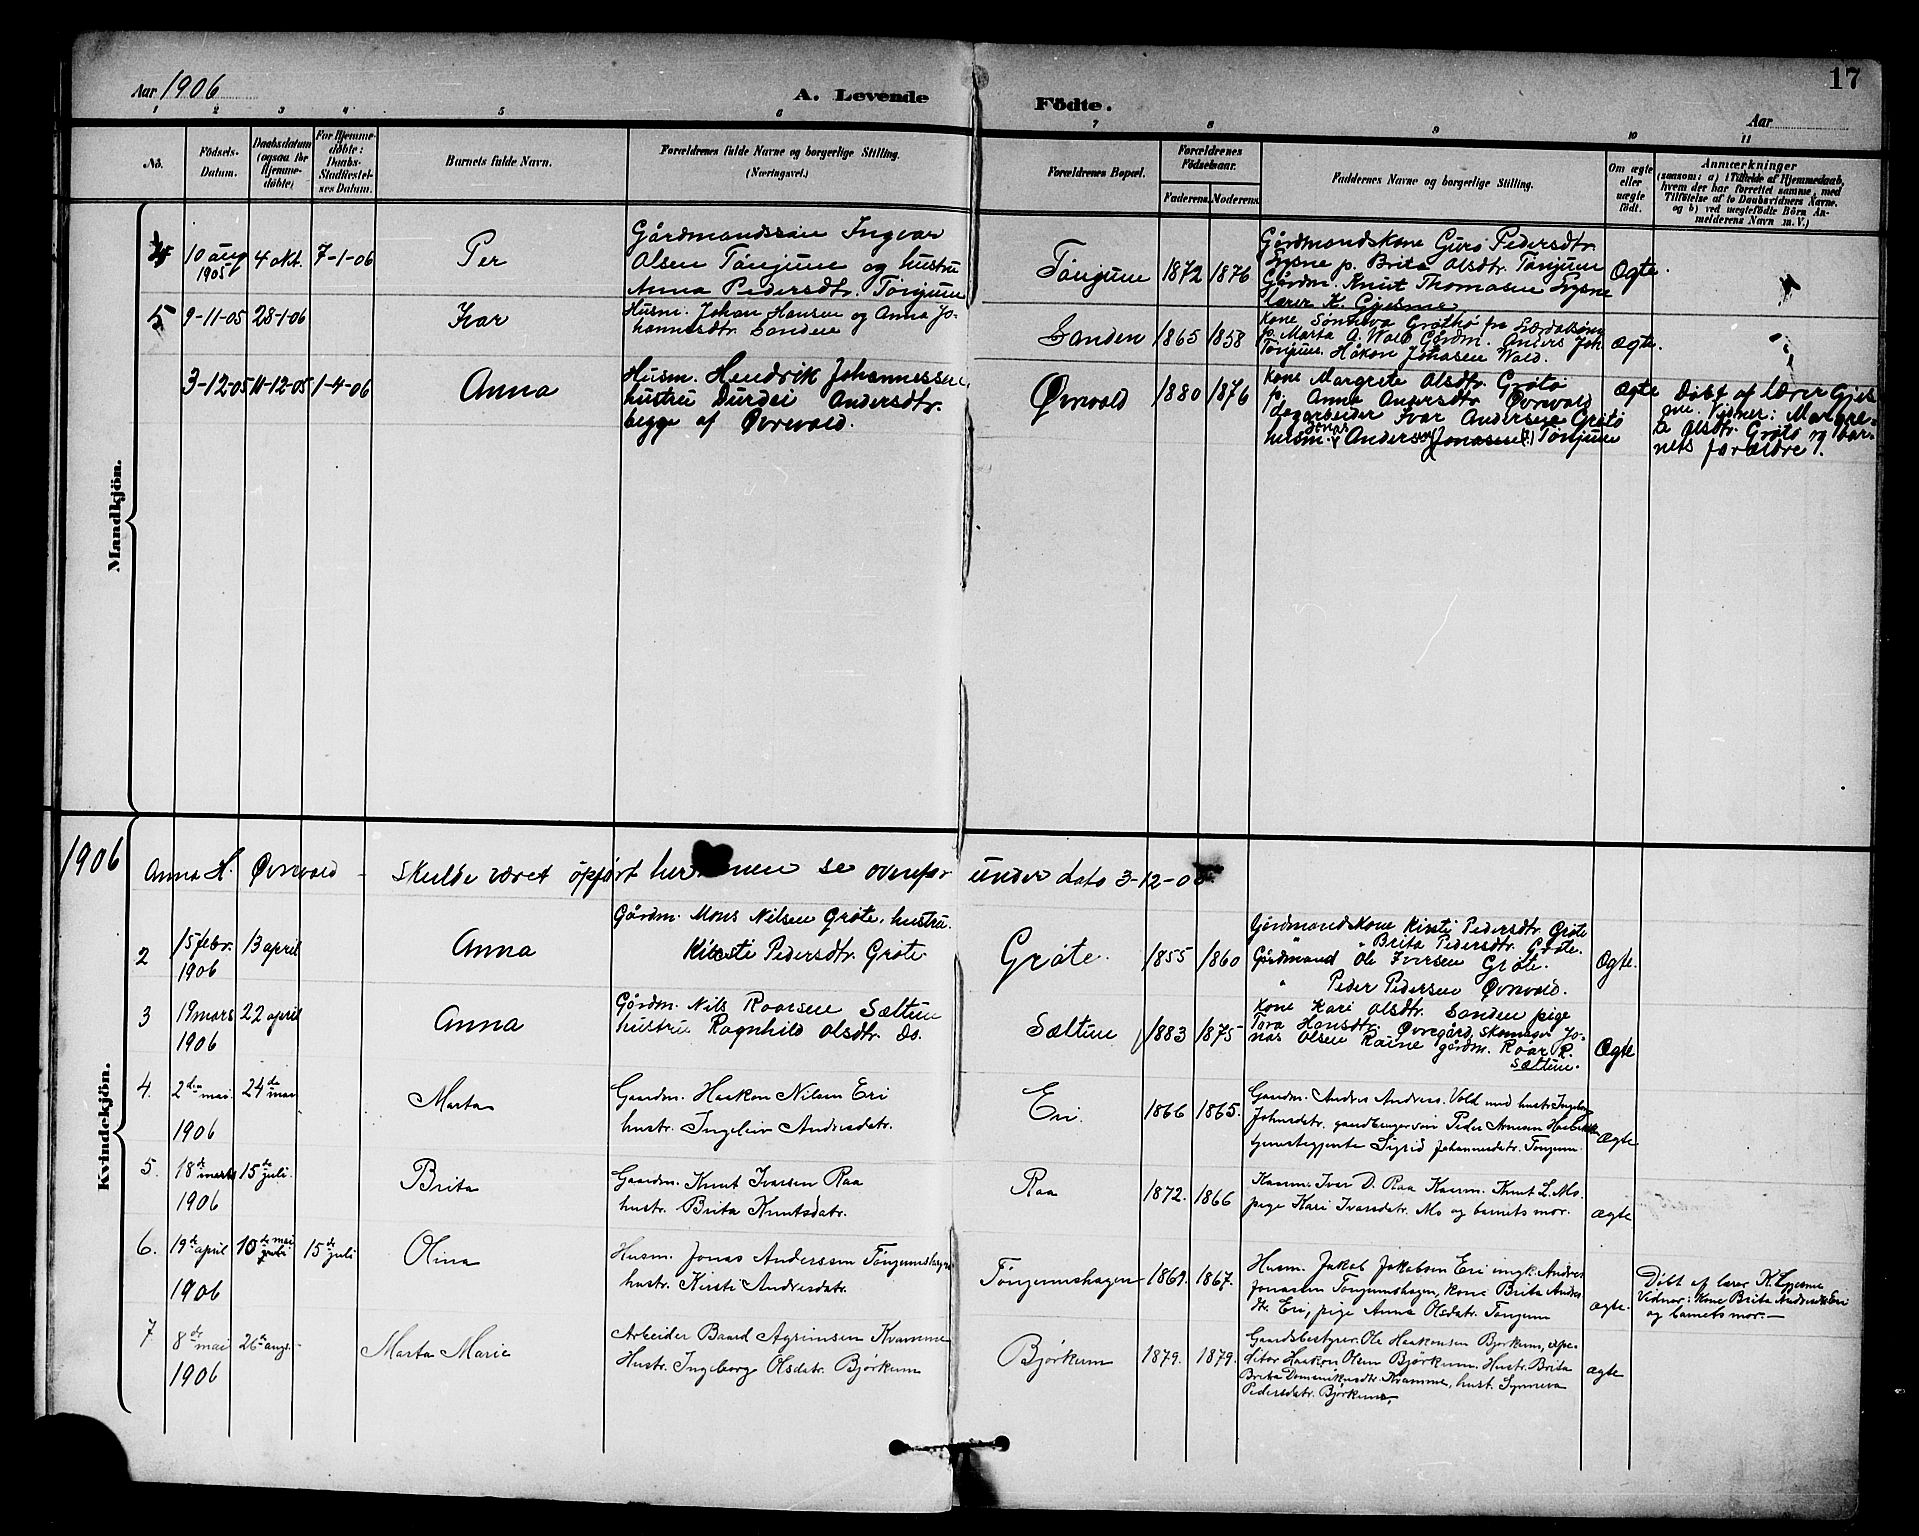 Aar 1906
A. Levende Födte.
17
Aar
1 2 3 4 5 6 7 8 9 10 11
No.
Födsels-Datum.
Daabsdatum (ogsaa for Hjemme-døbte)
For Hjemme-døbte: Daabs-Stadfæstel-ses Datum.
Barnets fulde Navn.
Forældrenes fulde Navne og borgerlige Stilling. (Næringsvei.)
Forældrenes Bopæl.
Forældrenes Födselsaar.
Faderens. Moderens.
Faddernes Navne og borgerlige Stilling.
Om ægte eller uægte født.
Anmærkninger
(saasom: a) i Tilfælde af Hjemmedaab,
hvem der har forrettet samme, med
Tilföielse af to Daabsvidners Navne,
og b) ved uægtefødte Börn An-
melderens Navn m. V.)
Mandkjön.
4 10 aug 1905 4 okt. 7-1-06 Per
Gårdmandssön Ingvar
Olsen Tönjum og hustru
Anna Pedersdtr. Tönjum
Tönjum 1872 1876
Gårdmandskone Guro Pedersdtr
Lysne p. Brita Olsdtr. Tönjum
Gårdm. Knut Thomasen Lysne
lærer K. Gjesme
Ægte.
5 9-11-05 28-1-06 Ivar
Husm. Johan Hansen og Anna Jo-
hannesdtr. Sanden
Sanden 1865 1858
Kone Sönneva Gröthö fra Lærdalsören
p. Marta A. Wald Gårdm. Anders Joh
Tönjum. Håkon Johasen Wald.
Ægte.
3-12-05 11-12-05 1-4-06 Anna
Husm. Hendrik Johannessen
hustru Durdei Andersdtr.
begge af Øvrevald.
Øvrevald 1880 1876
Kone Margrete Olsdtr. Grötö
p. Anna Andersdtr. Øvrevald
dagarbeider Ivar Andersen Grötö
husm. Jonas Anderssen Jonassen Tönjum
Ægte
Döbt af lærer Gjes-
me. Vidner: Margre-
te Olsdtr. Grötö og bar-
nets forældre.
1906
Kvindekjön.
Anna H. Øvrevald - skulde været opfört her men se ovenfor under dato 3-12-05
2 15 febr. 1906 13 april Anna
Gårdm. Mons Nilsen Gröte, hustru
Kirsti Pedersdtr. Gröte
Gröte. 1855 1860
Gårdmandskone Kirsti Pedersdtr. Gröte
" " Brita Pedersdtr. Gröte.
Gårdmand Ole Iversen Gröte.
" Peder Pedersen Øvrevald.
Ægte.
3 19 mars 1906 22 april Anna
Gårdm. Nils Roarsen Sæltun
hustru Ragnhild Olsdtr. do.
Sæltun 1883 1875
Kone Kari Olsdtr. Sanden pige
Tora Hansdtr. Øvregård, skomager Jo-
nas Olsen Raine gårdm. Roar R.
Sæltun.
Ægte
4. 2den mai 1906 24de mai Marta
Gaardm. Haakon Nilsen Eri
hustr. Ingeleiv Andersdatr.
Eri 1866 1865.
Gaardm. Andres Andres. Vold med hustr. Ingebor
Johnsdatr. gaardbrugersön Peder
tjenestepigente Sigrid Johannesdatr. Tönjum
Ægte
5. 18de marts 1906 15de juli. Brita
Gaardm. Knut Ivarsen Raa
hustr. Brita Knutsdatr.
Raa 1872. 1866
Kaarm. Ivar D. Raa Kaarm. Knut L. Mo.
pige Kari Ivarsdatr. Mo og barnets mor.
ægte
6. 19de april 1906 10de mai 15de juli Olina
Husm. Jonas Anderssen Tönjumshagen
hustr. Kirsti Andresdatr.
Tönjumshagen 1869. 1867.
Husm. Jakob Jakobsen Eri ungk. Andres
Jonassen Tönjumshagen, kone Brita Andres
dt. Eri, pige Anna Olsdatr. Tönjum
ægte.
Döbt af lærer K. Gjesme
Vidner: Kone Brita Andresdt. Eri
og barnets mor.—
7 8de mai 1906 26de aug. Marta Marie
Arbeider Baard Agrimsen Kvamme
Hustr. Ingeborg Olsdatr. Björkum
Björkum 1879. 1879.
Gaardsbestyrer Ole Haakonsen Björkum, expe-
ditör Haakon Olsen Björkum. Hustr. Brita
Brita Domenikusdtr. Kvamme, hust. Synneva
Pedersdatr. Björkum.
ægte